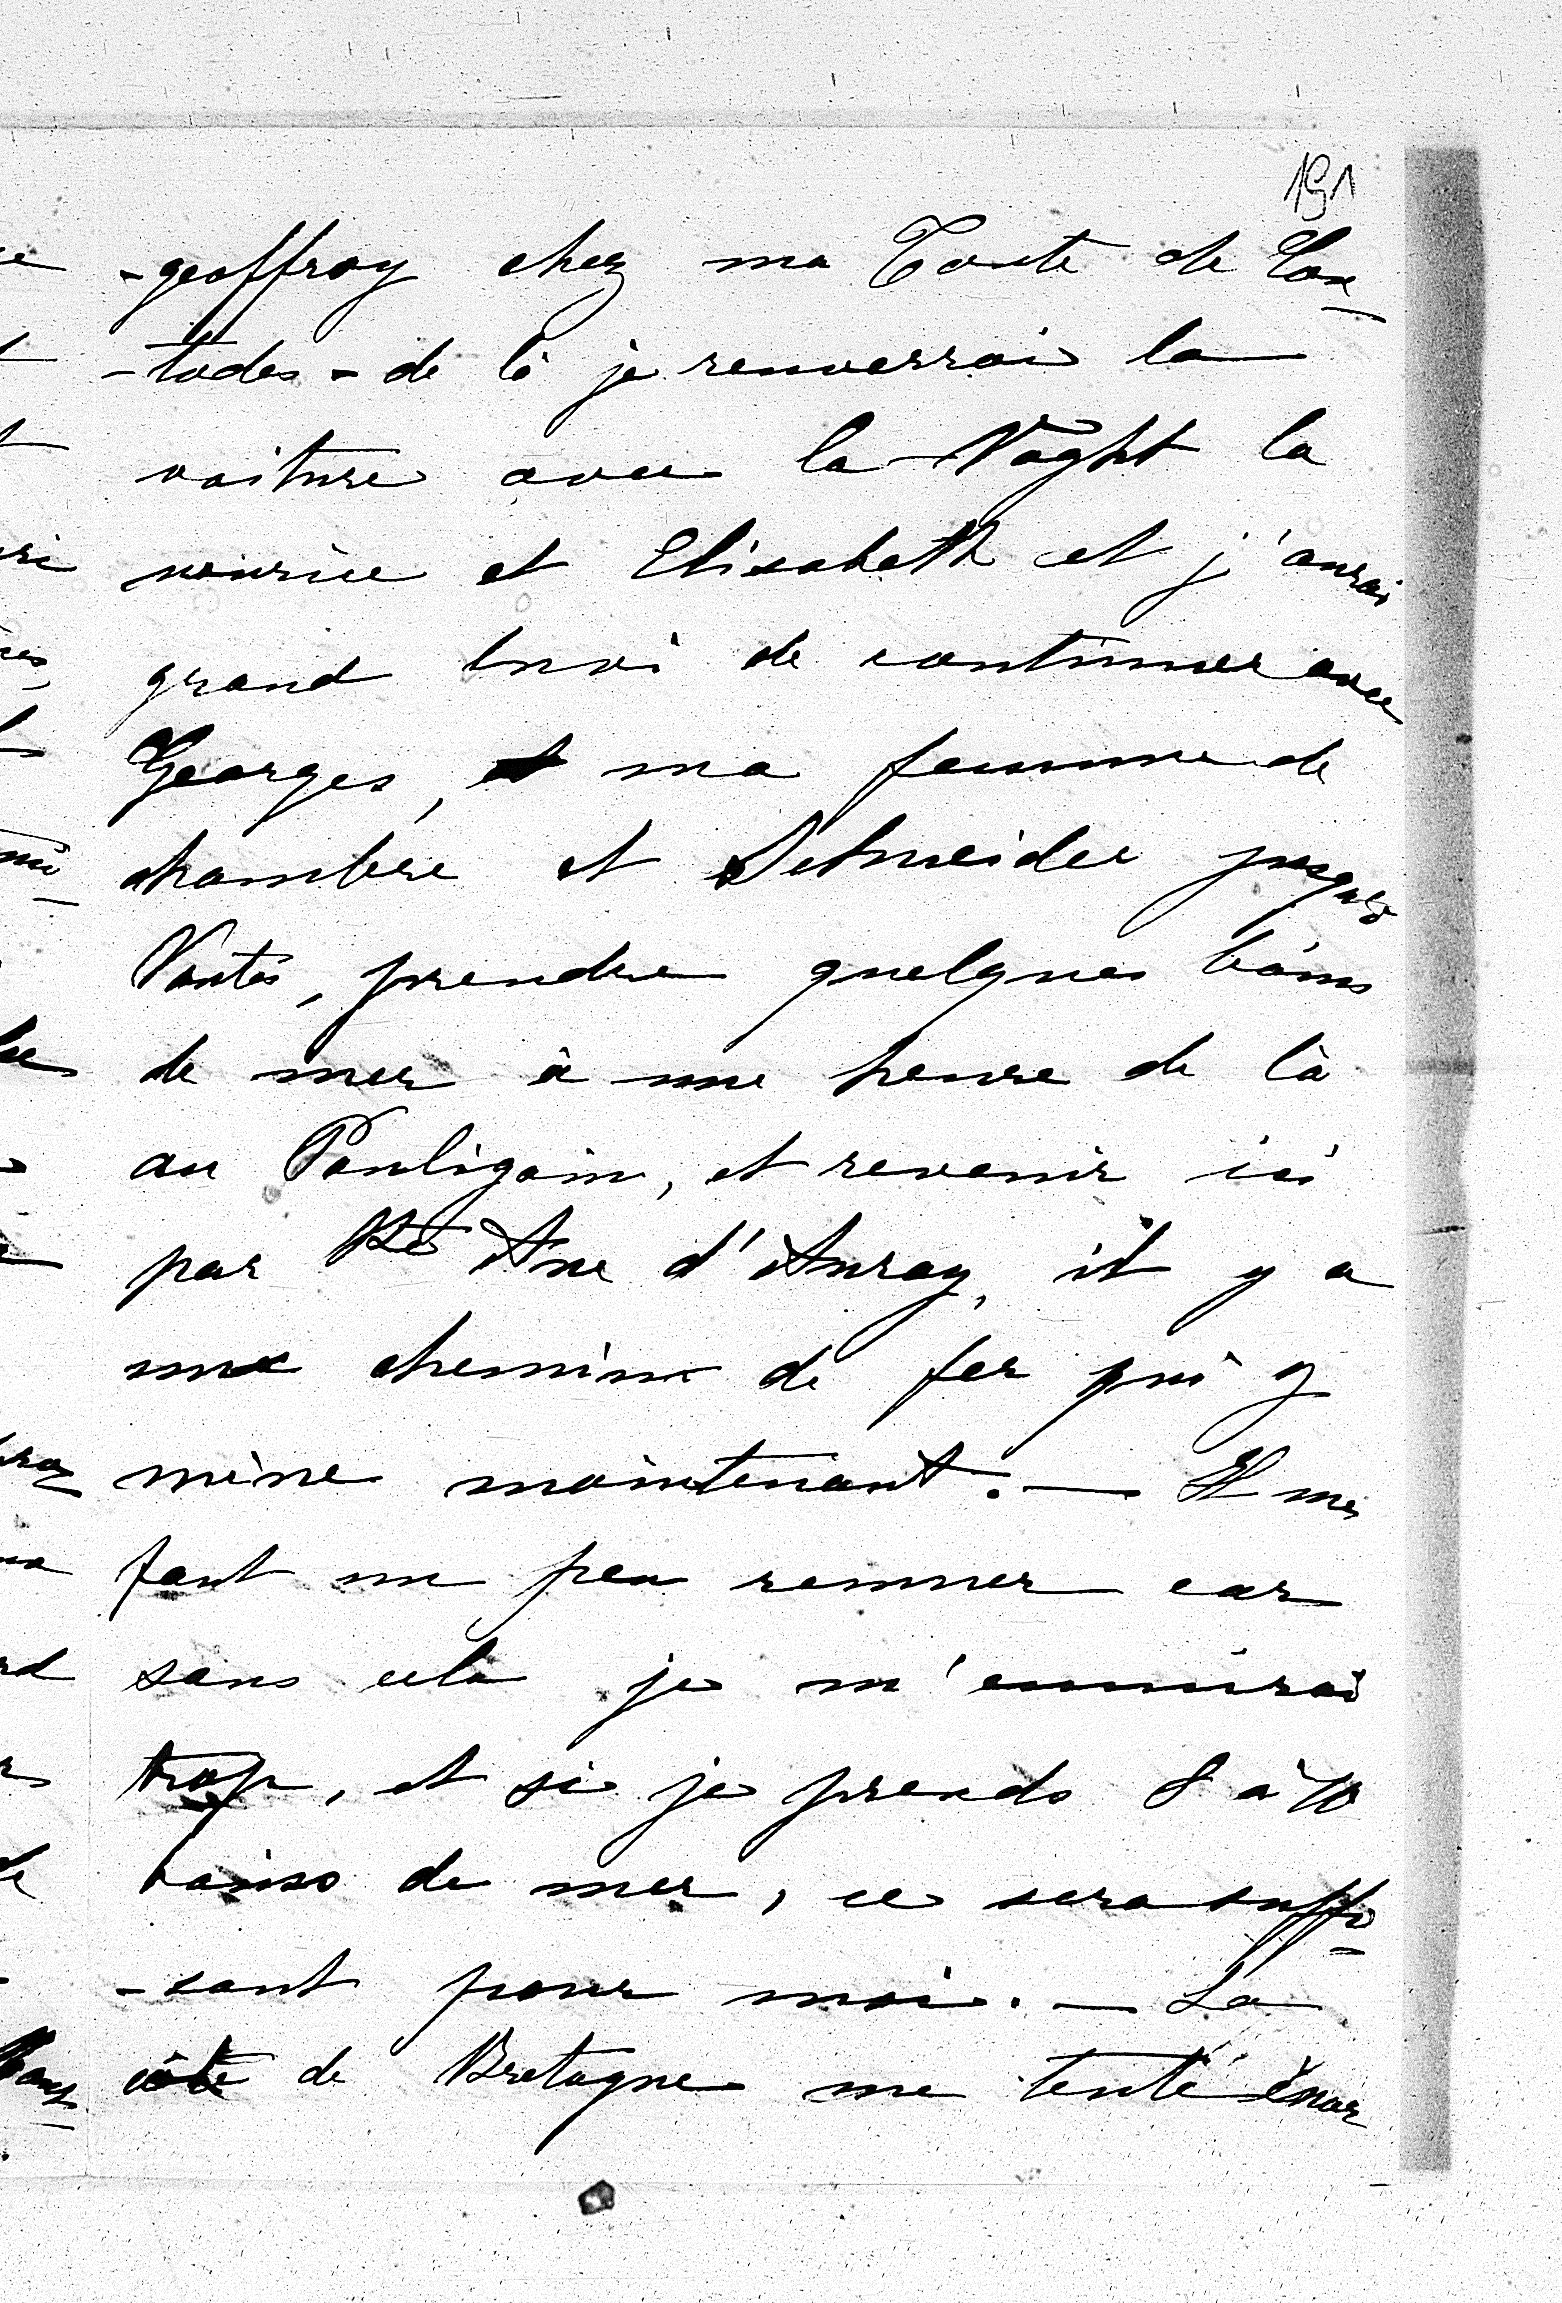 191
-geoffroy chez ma Tante de Con-
-tades - de là je renverrai la
voiture avec la Voght la
nourice et Elisabeth et j'aurai
grand envi de continuer avec
Georges, et ma femme de
chambre et Schneider jusqu'à
Nantes, prendre quelques bains
de mer à une heure de là
au Pouligain, et revenir ici
par Ste Ane d'Auray, il y a
un chemin de fer qui y
mène maintenant. — Il me
faut un peu remuer car
sans cela je m'ennuirai
trop, et si je prends 8 à 10
bains de mer, ce sera suffi-
-sant pour moi. — La
côte de Bretagne me tente énor